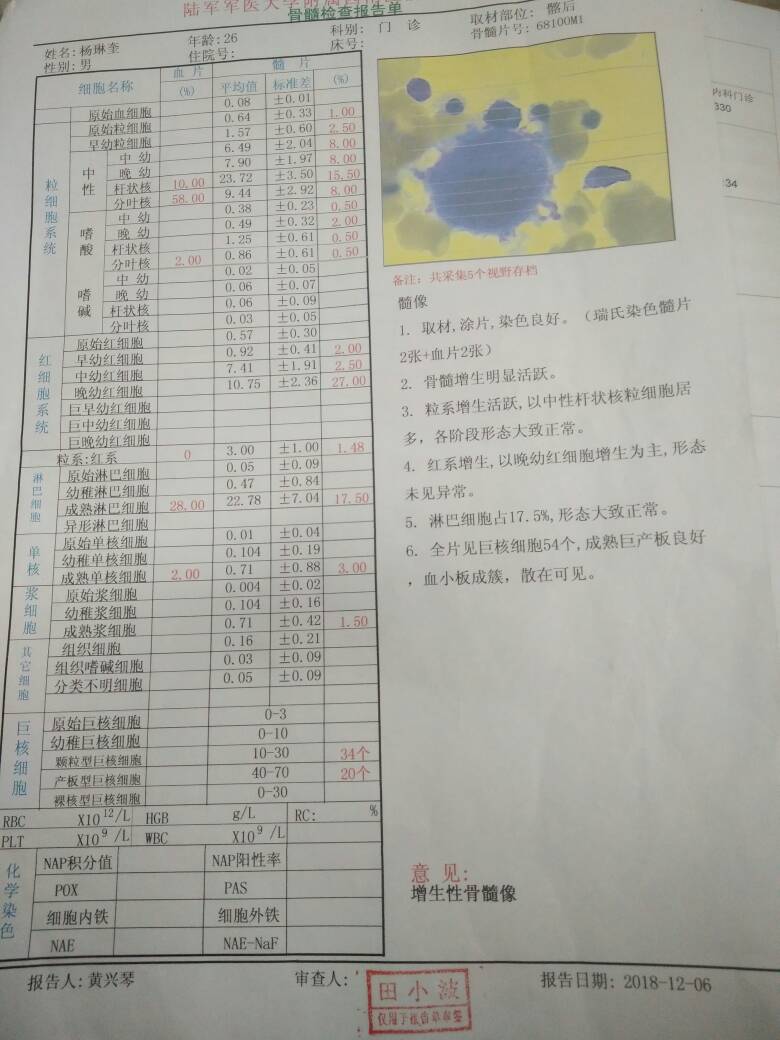 陆军军医大学附属西南
骨髓检查报告单
姓名: 杨琳奎 年龄:26 科别: 门 诊 取材部位: 髂后
性别: 男 住院号: 床号: 骨髓片号: 68100M1
细胞名称 血 片 (%) 髓 片 平均值 标准差 (%)
粒细胞系统
原始血细胞 0.08 ±0.01
原始粒细胞 0.64 ±0.33 1.00
早幼粒细胞 1.57 ±0.60 2.50
中性 中 幼 6.49 ±2.04 8.00
晚 幼 7.90 ±1.97 8.00
杆状核 10.00 23.72 ±3.50 15.50
分叶核 58.00 9.44 ±2.92 8.00
嗜酸 中 幼 0.38 ±0.23 0.50
晚 幼 0.49 ±0.32 2.00
杆状核 1.25 ±0.61 0.50
分叶核 2.00 0.86 ±0.61 0.50
嗜碱 中 幼 0.02 ±0.05
晚 幼 0.06 ±0.07
杆状核 0.06 ±0.09
分叶核 0.03 ±0.05
红细胞系统
原始红细胞 0.57 ±0.30
早幼红细胞 0.92 ±0.41 2.00
中幼红细胞 7.41 ±1.91 2.50
晚幼红细胞 10.75 ±2.36 27.00
巨早幼红细胞
巨中幼红细胞
巨晚幼红细胞
粒系:红系 0 3.00 ±1.00 1.48
淋巴细胞
原始淋巴细胞 0.05 ±0.09
幼稚淋巴细胞 0.47 ±0.84
成熟淋巴细胞 28.00 22.78 ±7.04 17.50
异形淋巴细胞
单核
原始单核细胞 0.01 ±0.04
幼稚单核细胞 0.104 ±0.19
成熟单核细胞 2.00 0.71 ±0.88 3.00
浆细胞
原始浆细胞 0.004 ±0.02
幼稚浆细胞 0.104 ±0.16
成熟浆细胞 0.71 ±0.42 1.50
其它细胞
组织细胞 0.16 ±0.21
组织嗜碱细胞 0.03 ±0.09
分类不明细胞 0.05 ±0.09
巨核细胞
原始巨核细胞 0-3
幼稚巨核细胞 0-10
颗粒型巨核细胞 10-30 34个
产板型巨核细胞 40-70 20个
裸核型巨核细胞 0-30
RBC X10¹²/L HGB g/L RC: %
PLT X10⁹/L WBC X10⁹/L
化学染色
NAP积分值 NAP阳性率
POX PAS
细胞内铁 细胞外铁
NAE NAE-NaF
备注: 共采集5个视野存档
髓像
1. 取材,涂片,染色良好。(瑞氏染色髓片
2张+血片2张)
2. 骨髓增生明显活跃。
3. 粒系增生活跃,以中性杆状核粒细胞居
多,各阶段形态大致正常。
4. 红系增生,以晚幼红细胞增生为主,形态
未见异常。
5. 淋巴细胞占17.5%,形态大致正常。
6. 全片见巨核细胞54个,成熟巨产板良好
,血小板成簇,散在可见。
意 见:
增生性骨髓像
报告人: 黄兴琴 审查人: 报告日期: 2018-12-06
田小波
仅用于报告单审签
内科门诊
330
34